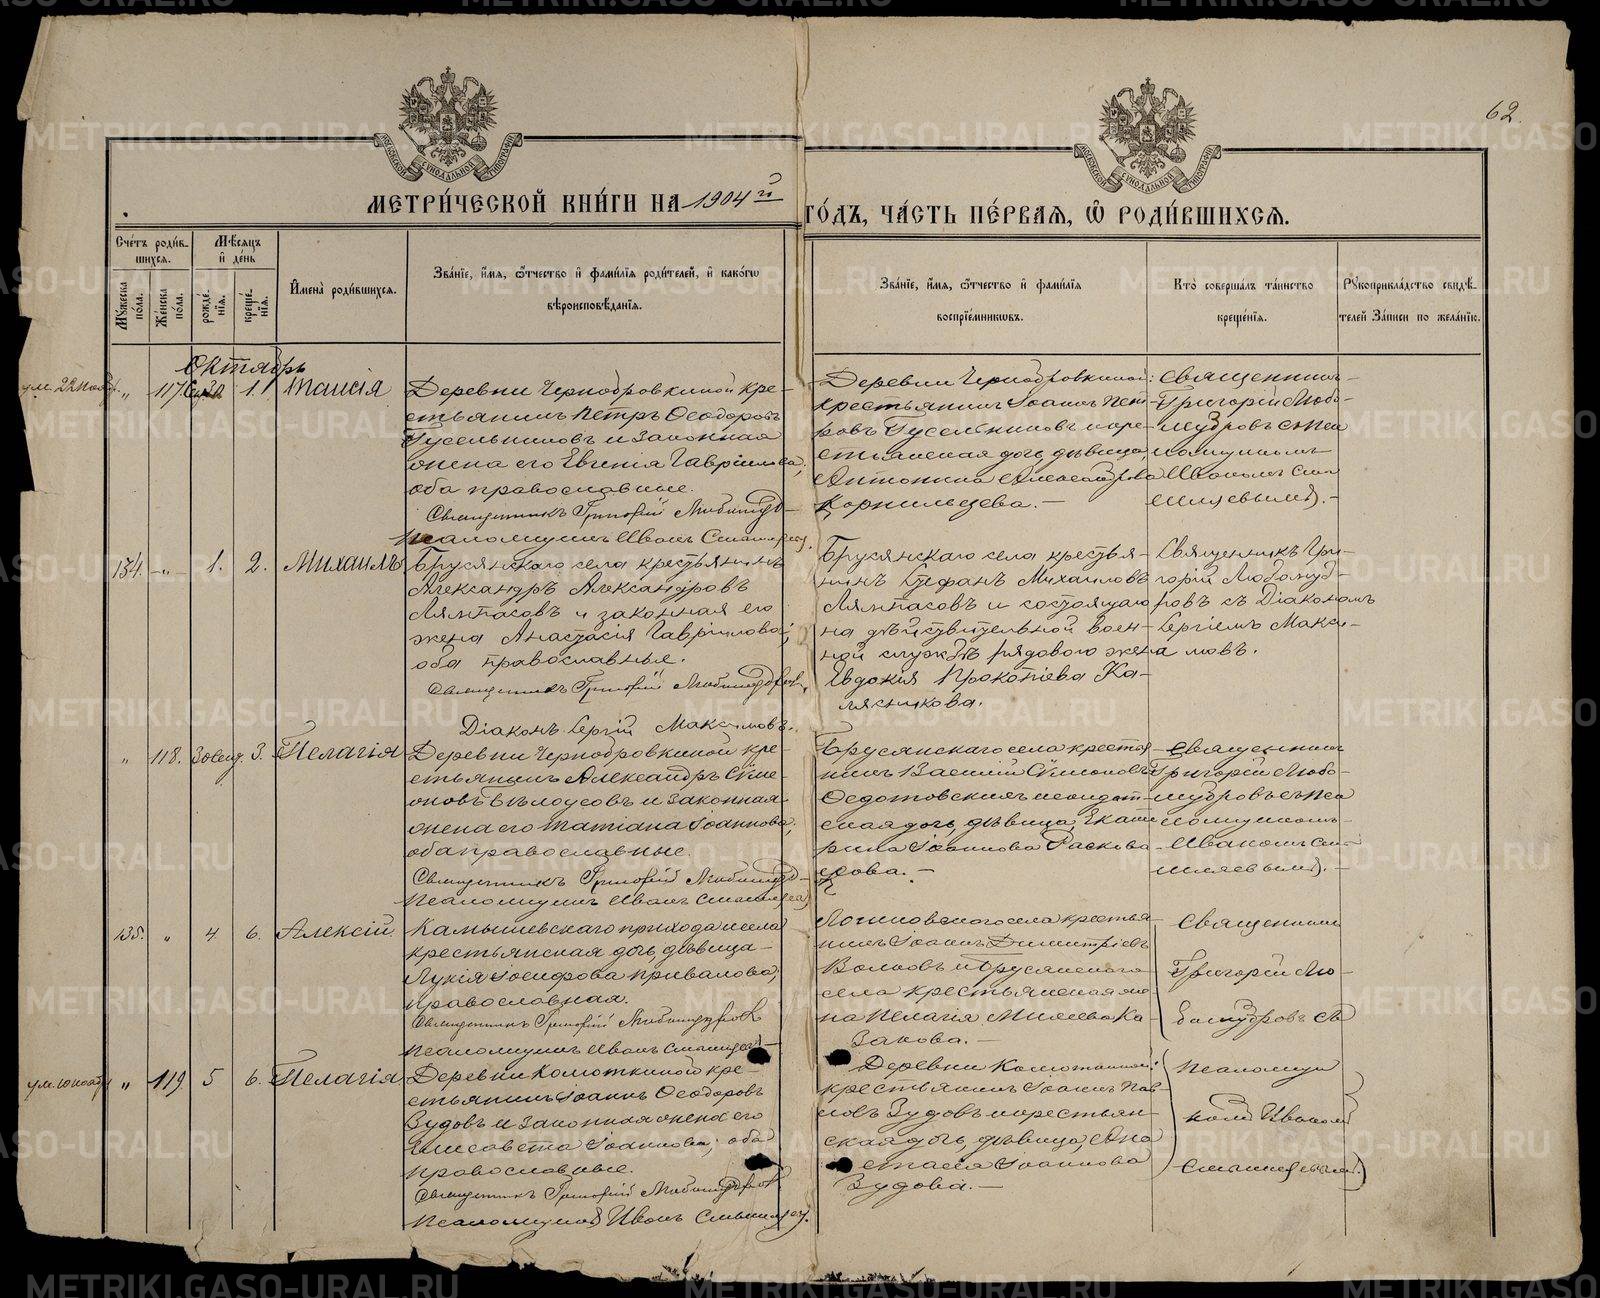 62.
МЕТРИ́ЧЕСКОЙ КНИ́ГИ НА 1904й ГО́ДЪ, ЧА́СТЬ ПЕ́РВАЯ, Ѿ РОДИ́ВШИХСЯ.
Сче́тъ роди́вшихся.
Мꙋ́жеска по́ла.
Же́нска по́ла.
Мѣ́сяцъ и҆ де́нь
рожде́нїя.
креще́нїя.
И҆мена̀ роди́вшихся.
Зва́нїе, и҆́мя, ѻ҆́тчество и҆ фами́лїя роди́телей, и҆ како́гѡ
вѣроисповѣ́данїя.
Зва́нїе, и҆́мя, ѻ҆́тчество и҆ фами́лїя
воспрїе́мникѡвъ.
Кто̀ соверша́лъ та́инство
креще́нїя.
Рꙋкоприкла́дство свидѣ́-
телей За́писи по жела́нїю.
Октябрь
ум. 22 Нояб.
" 117. 1. Таисія
Деревни Чернобровкиной кре-
стьянинъ Петръ Ѳеодоровъ
Гусельниковъ и законная
жена его Евгенія Гавріилова,
оба православные.
Священникъ Григорій Любомудр-
Псаломщикъ Иванъ
Деревни Чернобровкиной
крестьянинъ Іоаннъ Пет-
ровъ Гусельниковъ и кре-
стьянская дочь, дѣвица,
Антонина Александрова
Корнильцева. —
Священникъ
Григорій Любо-
мудровъ съ Пса
ломщикомъ
Иваномъ
154. — " — 1. 2. Михаилъ
Брусянскаго села крестьянинъ
Александръ Александровъ
Лямпасовъ и законная его
жена Анастасія Гавріилова,
оба православные.
Священникъ Григорій Любомудровъ,
Діаконъ Сергій Максимовъ.
Брусянскаго села крестья-
нинъ Стефанъ Михаиловъ
Лямпасовъ и состоящаго
на дѣйствительной воен-
ной службѣ рядового жена
Евдокія Прокопіева Ка-
лясникова.
Священникъ Гри-
горій Любомуд-
ровъ съ Діакономъ
Сергіемъ Макси-
мовъ.
" 118. 3. Пелагія
Деревни Чернобровкиной кре-
стьянинъ Александръ Сѵме-
оновъ Бѣлоусовъ и законная
жена его Татіана Іоаннова,
оба православные.
Священникъ Григорій Любомудр-
Псаломщикъ Иванъ
Брусянскаго села крестья
нинъ Василій Сѵмеоновъ
Ѳедотовскихъ и солдат-
ская дочь, дѣвица, Екате
рина Іоаннова
Священникъ
Григорій Любо-
мудровъ съ Пса
ломщикомъ
Иваномъ
135. " 4 6. Алексій.
Камышевскаго прихода и села
крестьянская дочь, дѣвица
Лукія Іосифова Привалова,
православная.
Священникъ Григорій Любомудровъ
Псаломщикъ Иванъ
Логиновского села крестья
нинъ Іоаннъ Димитріевъ
Волковъ и Брусянскаго
села крестьянская же-
на Пелагія Ка-
закова. —
Священникъ
Григорій Лю-
бомудровъ съ
Псаломщи
комъ Иваномъ
" 119 5 6. Пелагія
Деревни Колоткиной кре-
стьянинъ Іоаннъ Ѳеодоровъ
Зудовъ и законная жена его
Елисавета Іоаннова, оба
православные.
Священникъ Григорій Любомудровъ.
Псаломщикъ Иванъ
Деревни Колоткиной
крестьянинъ Іоаннъ Пав-
ловъ Зудовъ и крестьян-
ская дочь, дѣвица, Ана
стасія Іоаннова
Зудова. —